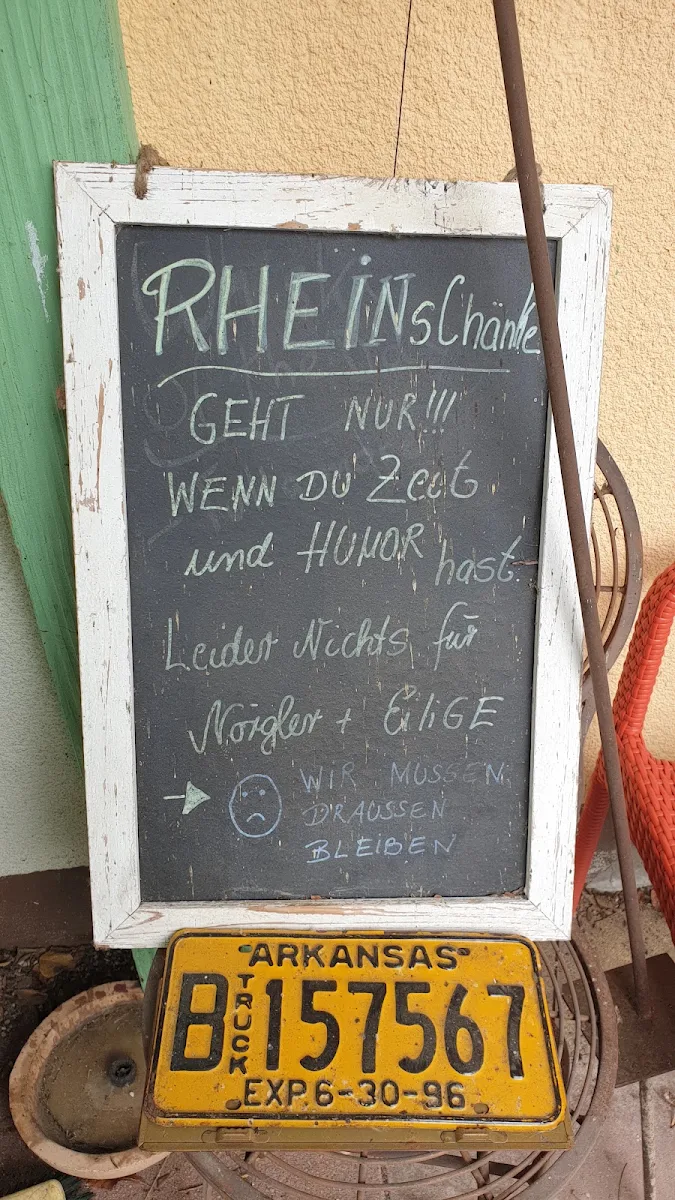 RHEINsChänke
GEHT NUR!!!
WENN DU Zeit
und HUMOR hast.
Leider Nichts für
Nörgler + EiliGE
→ ☹ WIR MÜSSEN
DRAUSSEN
BLEiBEN
ARKANSAS
B TRUCK 157567
EXP. 6-30-96